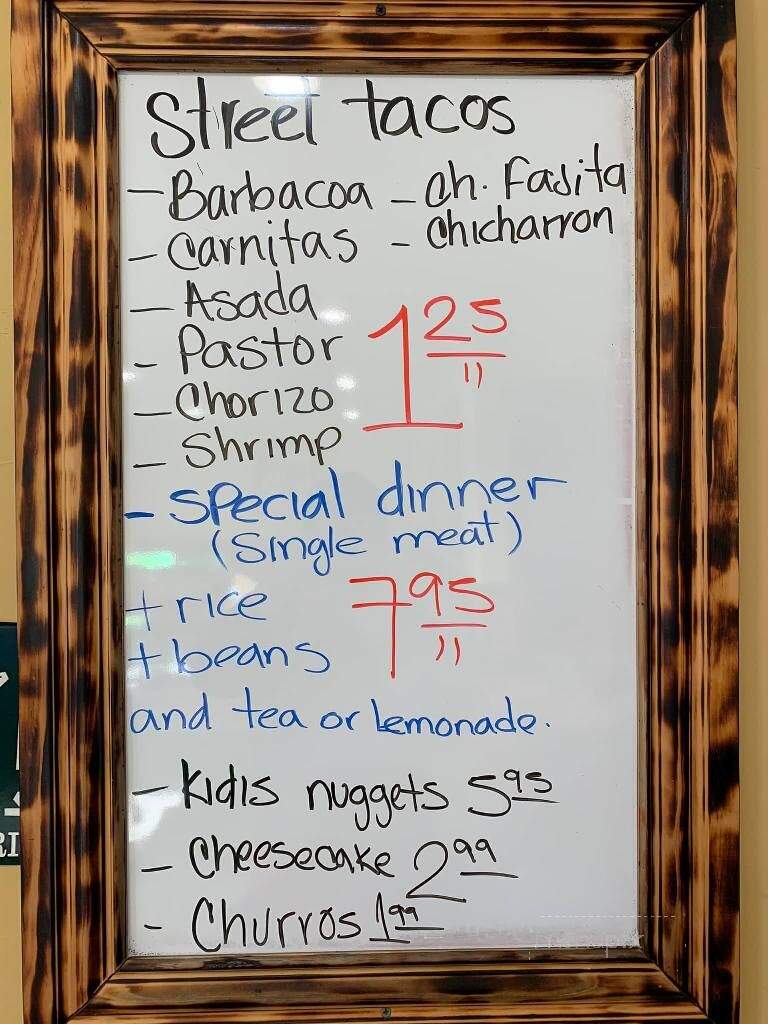 Street tacos
- Barbacoa - Ch. Fajita
- Carnitas - Chicharron
- Asada
- Pastor
- Chorizo
- Shrimp
1 25
- Special dinner
(Single meat)
+ rice
+ beans
7 95
and tea or Lemonade.
- Kidis nuggets 5 95
- Cheesecake 2 99
- Churros 1 99
RI